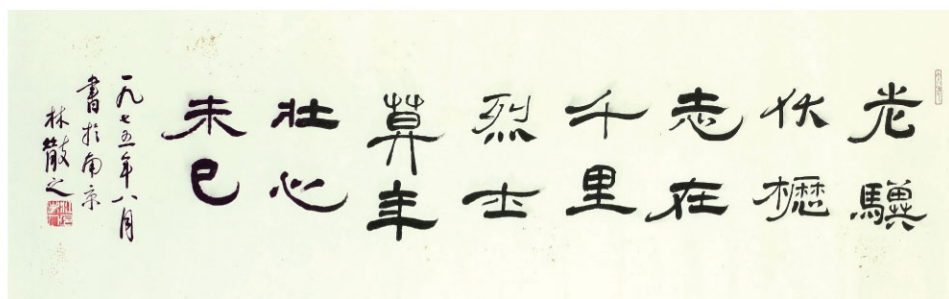 老驥
伏櫪
志在
千里
烈士
莫年
壯心
未已
一九七五年八月
書於南京
林散之